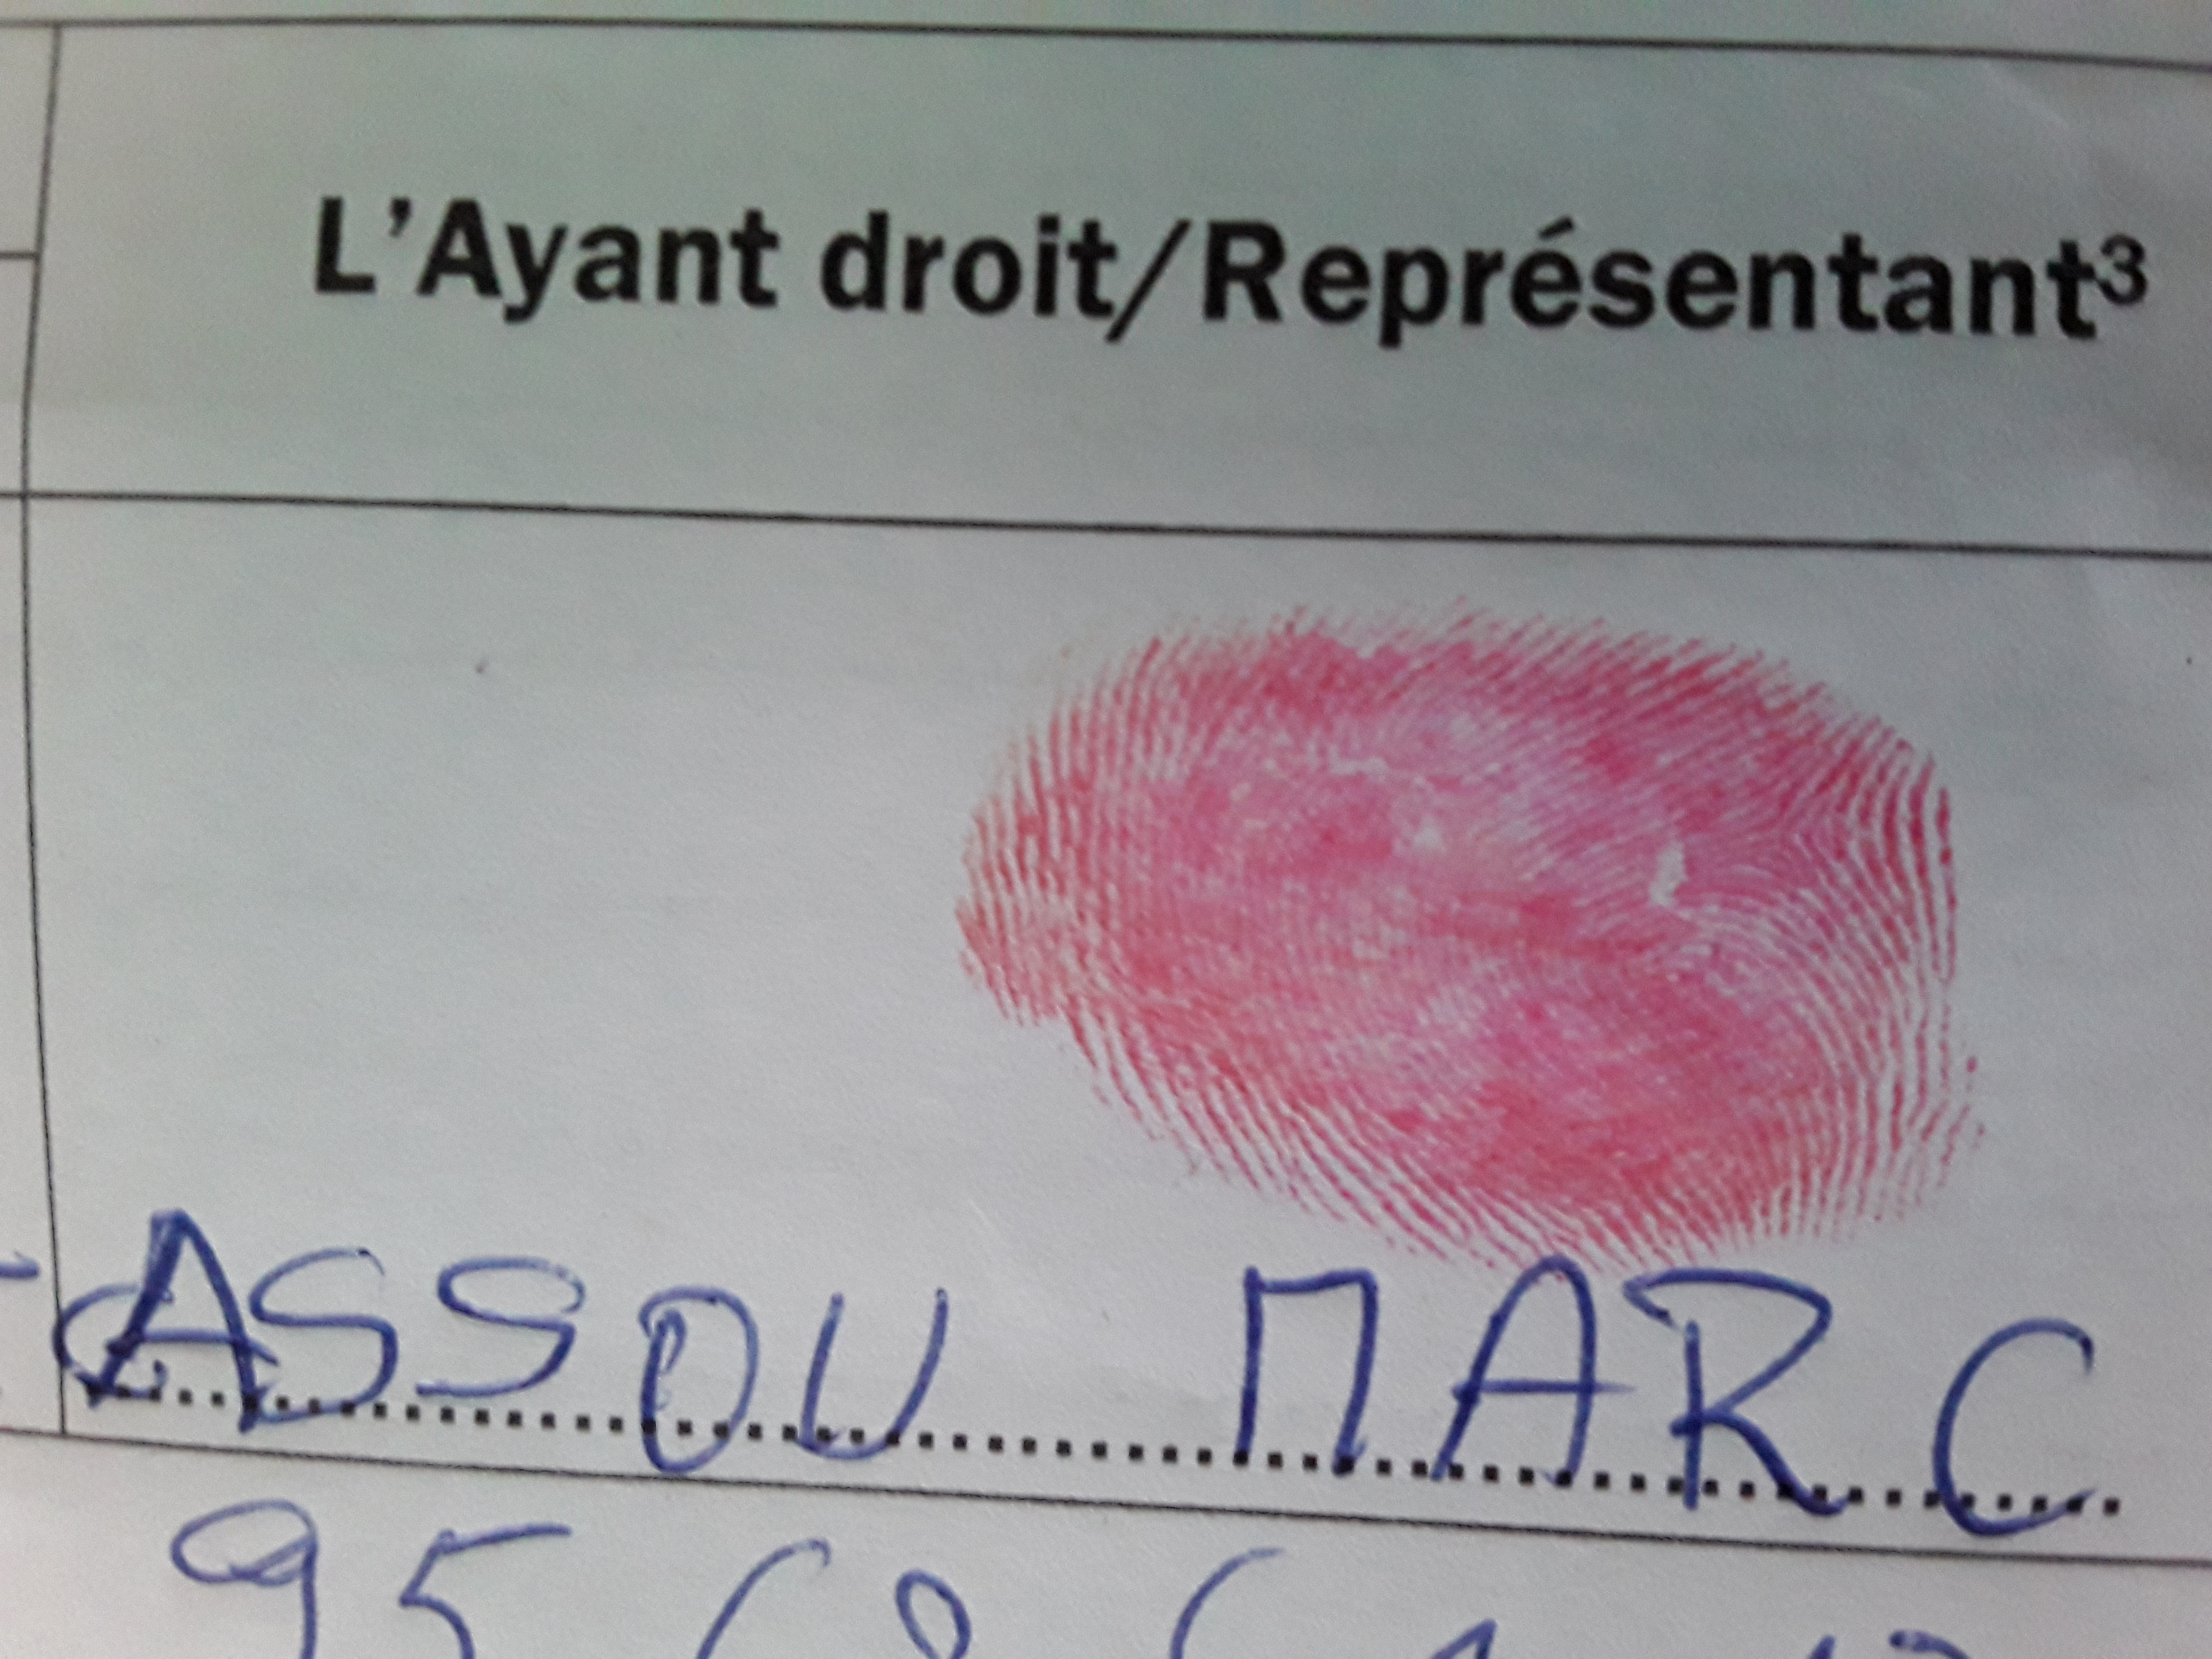 L'Ayant droit/Représentant³
ASSOU MARC